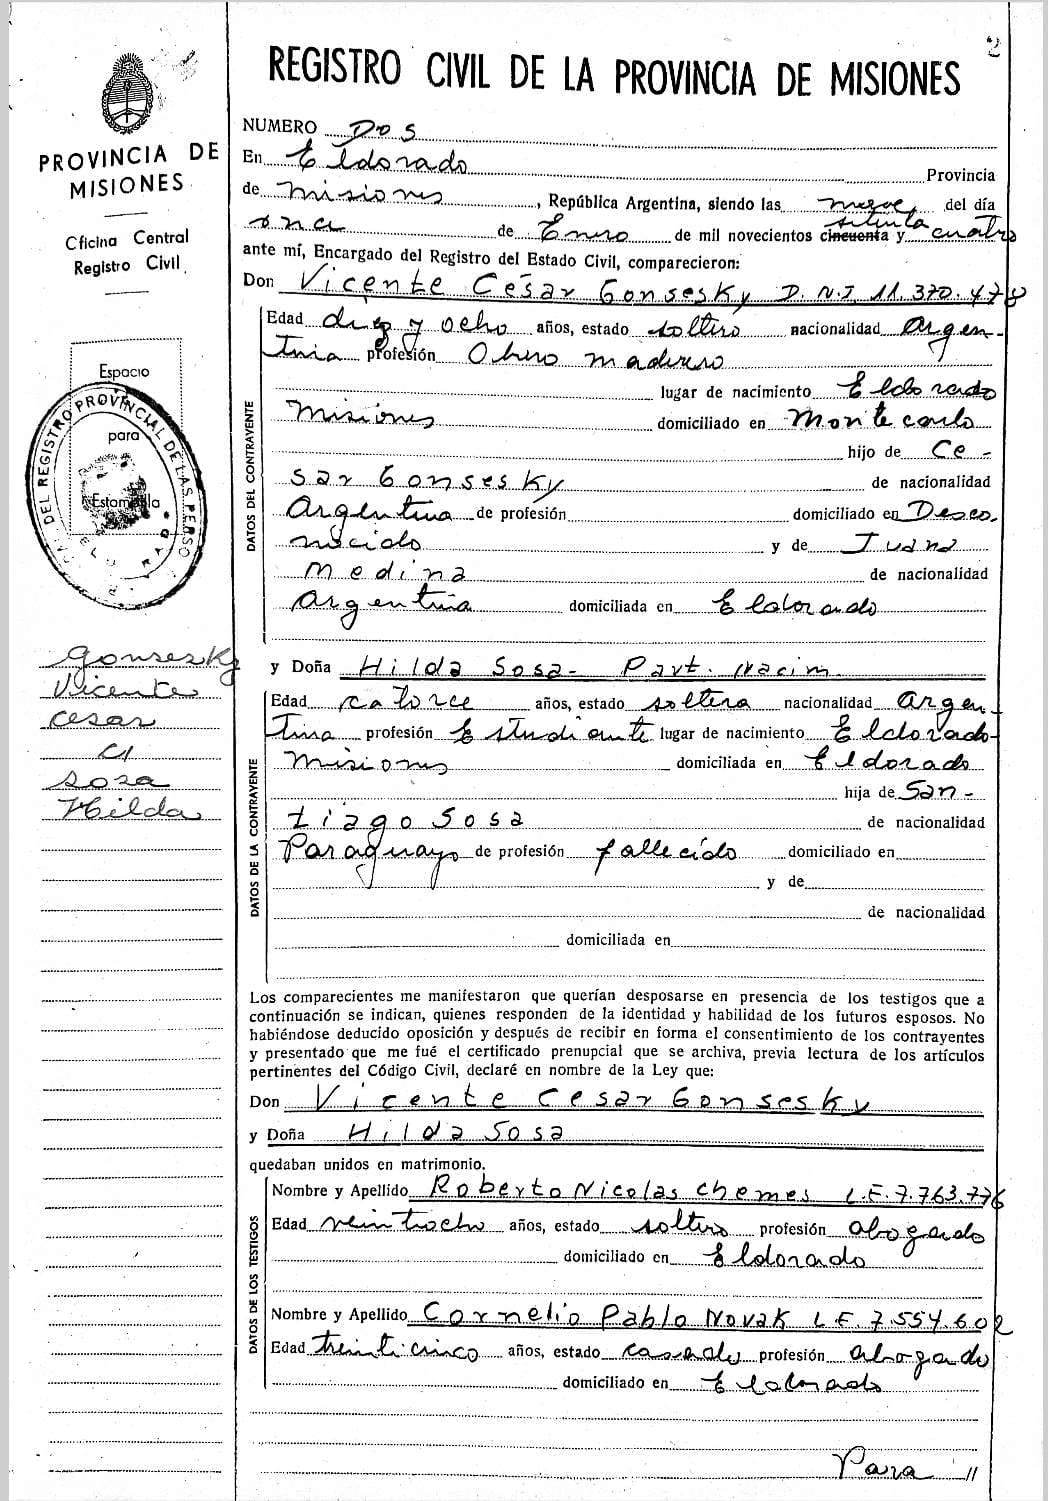 2
REGISTRO CIVIL DE LA PROVINCIA DE MISIONES
PROVINCIA DE
MISIONES
Oficina Central
Registro Civil
Espacio
para
Estampilla
DEL REGISTRO PROVINCIAL DE LAS PERSO
Gonsesky
Vicente
Cesar
c/
Sosa
Hilda
NUMERO Dos
En Eldorado Provincia
de Misiones, República Argentina, siendo las nueve, del día
once de Enero de mil novecientos cincuenta y setenta cuatro
ante mí, Encargado del Registro del Estado Civil, comparecieron:
Don Vicente César Gonsesky D.N.I 11.370.478
DATOS DEL CONTRAYENTE
Edad diez y ocho años, estado soltero nacionalidad Argen-
tina profesión Obrero maderero
lugar de nacimiento Eldorado
Misiones domiciliado en Montecarlo
hijo de Ce-
sar Gonsesky de nacionalidad
Argentina de profesión domiciliado en Desco.
nocido y de Juana
Medina de nacionalidad
Argentina domiciliada en Eldorado
y Doña Hilda Sosa- Part. Nacim.
DATOS DE LA CONTRAYENTE
Edad catorce años, estado soltera nacionalidad Argen
tina profesión Estudiante lugar de nacimiento Eldorado-
Misiones domiciliada en Eldorado
hija de San-
tiago Sosa de nacionalidad
Paraguayo de profesión fallecido domiciliado en
y de
de nacionalidad
domiciliada en
Los comparecientes me manifestaron que querían desposarse en presencia de los testigos que a
continuación se indican, quienes responden de la identidad y habilidad de los futuros esposos. No
habiéndose deducido oposición y después de recibir en forma el consentimiento de los contrayentes
y presentado que me fué el certificado prenupcial que se archiva, previa lectura de los artículos
pertinentes del Código Civil, declaré en nombre de la Ley que:
Don Vicente Cesar Gonsesky
y Doña Hilda Sosa
quedaban unidos en matrimonio.
DATOS DE LOS TESTIGOS
Nombre y Apellido Roberto Nicolas Chemes L.E.7.763.776
Edad veintiocho años, estado soltero profesión abogado
domiciliado en Eldorado
Nombre y Apellido Cornelio Pablo Novak L.E.7.554.602
Edad treinticinco años, estado casado profesión abogado
domiciliado en Eldorado
Para //